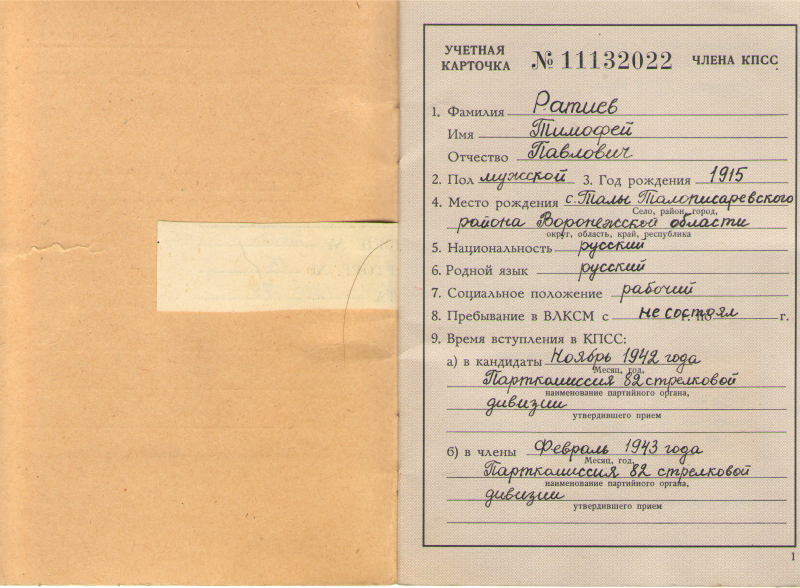 УЧЕТНАЯ КАРТОЧКА № 11132022 ЧЛЕНА КПСС
1. Фамилия Ратиев
Имя Тимофей
Отчество Павлович
2. Пол мужской 3. Год рождения 1915
4. Место рождения с. Талы Талописаревского
Село, район, город,
района Воронежской области
округ, область, край, республика
5. Национальность русский
6. Родной язык русский
7. Социальное положение рабочий
8. Пребывание в ВЛКСМ с не состоял г. по г.
9. Время вступления в КПСС:
а) в кандидаты Ноябрь 1942 года
Месяц, год,
Парткомиссия 82 стрелковой
наименование партийного органа,
дивизии
утвердившего прием
б) в члены Февраль 1943 года
Месяц, год,
Парткомиссия 82 стрелковой
наименование партийного органа,
дивизии
утвердившего прием
1